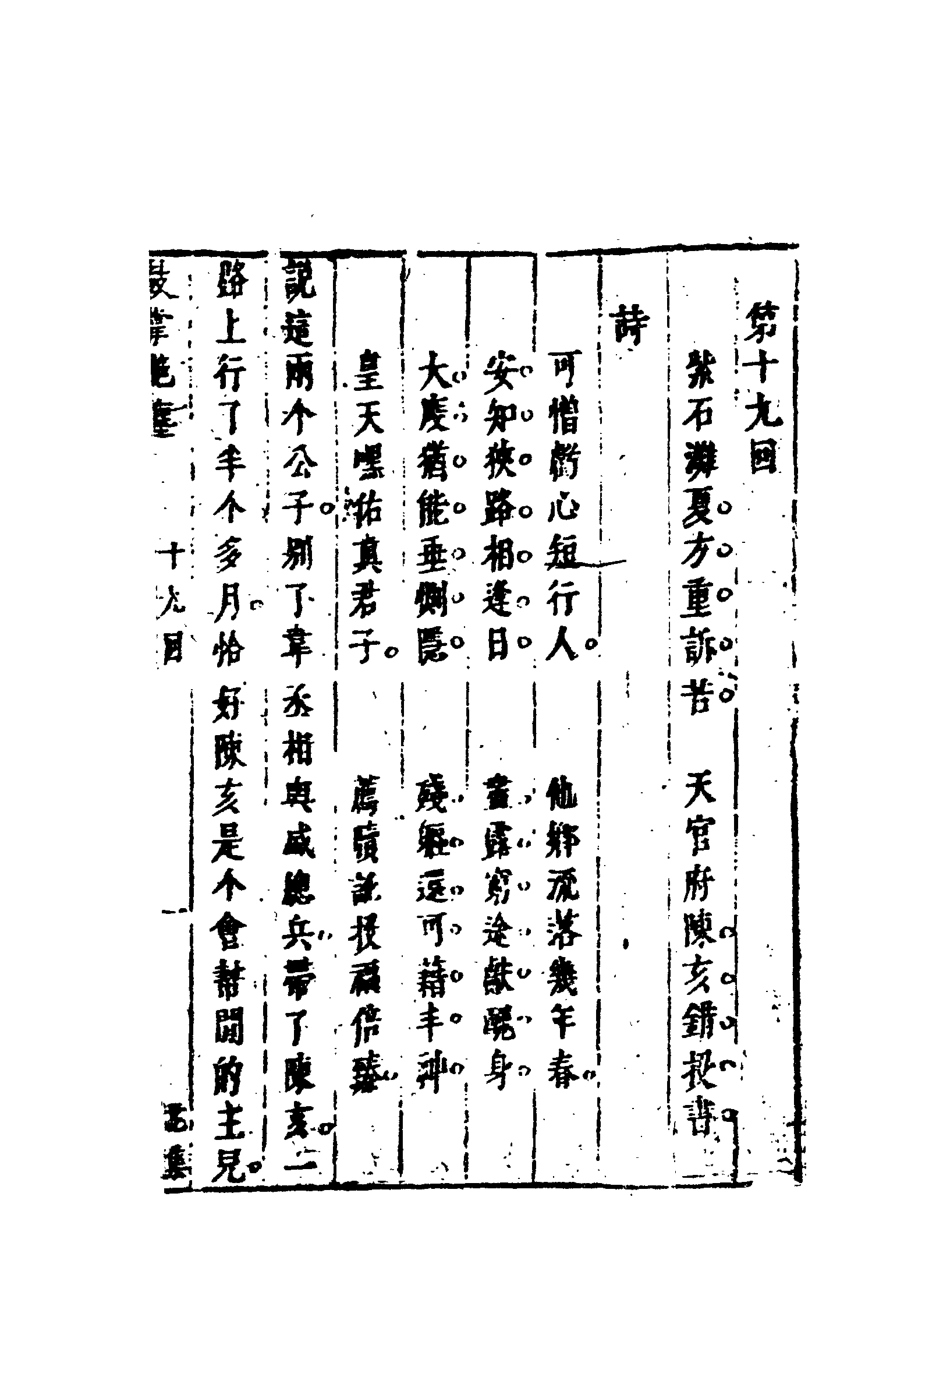 第十九回
紫石灘夏方重訴苦　天官府陳亥錯投書
詩
可憎虧心短行人　他鄉流落幾年春
安知狹路相逢日　盡露窮途献醜身
大度猶能垂惻隱　殘軀還可藉丰神
皇天嘿佑真君子　薦牘試投福倍臻
說這兩个公子別了韋丞相與戚總兵帶了陳亥一
路上行了半个多月恰好陳亥是个會幇閒的主兒
鼓掌絶塵　十九回　一　集